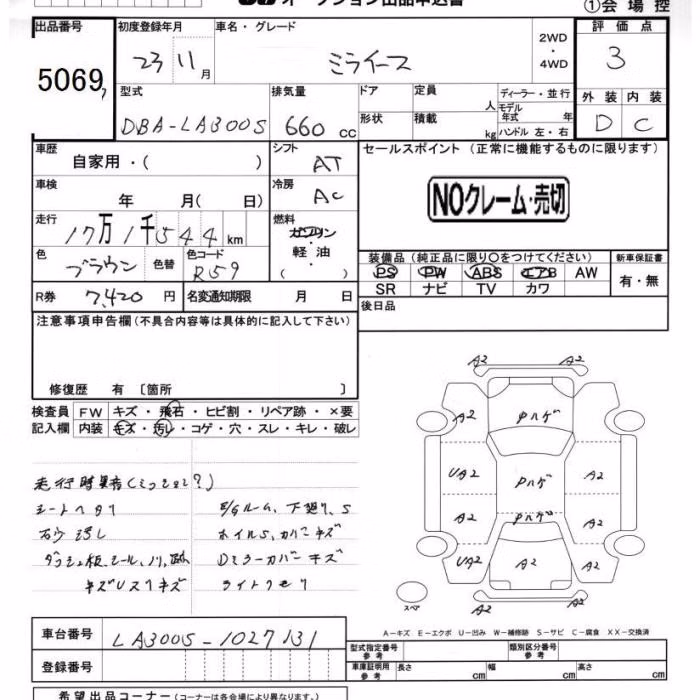 オークション出品申込書
①会場控
出品番号
5069
初度登録年月
23 11月
車名・グレード
ミライース
2WD
・
4WD
評価点
3
型式
DBA-LA300S
排気量
660 cc
ドア
形状
定員
人
積載
kg
ディーラー・並行
モデル年式 年
ハンドル 左・右
外装 内装
D C
車歴
自家用・( )
シフト
AT
セールスポイント (正常に機能するものに限ります)
NOクレーム・売切
車検
年 月( 日)
冷房
AC
走行
17万1千544km
燃料
ガソリン
・
軽油
色
ブラウン
色替
色コード
R59
装備品 (純正品に限り〇をつけてください)
PS PW ABS エアB AW
SR ナビ TV カワ
新車保証書
有・無
R券 7,420円
名変通知期限 月 日
後日品
注意事項申告欄 (不具合内容等は具体的に記入して下さい)
修復歴 有 [箇所 ]
検査員記入欄
FW キズ・飛石・ヒビ割・リペア跡・×要
内装 キズ・汚レ・コゲ・穴・スレ・キレ・破レ
シートヘタリ
E/Gルーム、下廻り、S
ホイルS、カバーキズ
Dミラーカバーキズ
ライトクモリ
A2 A2
A2 Pハゲ
UA2 Pハゲ A2
A2 Pハゲ A2
UA2 A2 A2
A2 A2
スペア
A-キズ E-エクボ U-凹み W-補修跡 S-サビ C-腐食 XX-交換済
車台番号
LA300S-1027131
登録番号
型式指定番号 参考
類別区分番号 参考
車庫証明用 参考
長さ cm
幅 cm
高さ cm
希望出品コーナー (コーナーは各会場により異なります。)